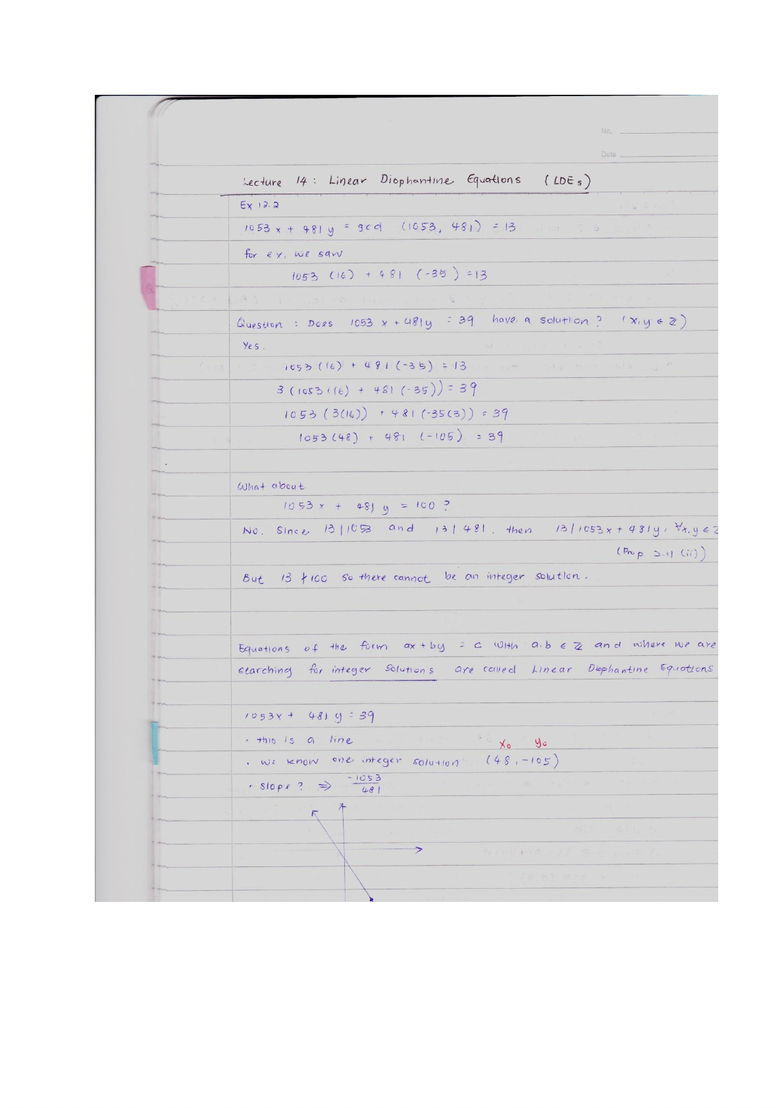 No.
Date
Lecture 14: Linear Diophantine Equations (LDEs)
Ex 12.2
1053x + 481y = gcd (1053, 481) = 13
for ex. we saw
1053 (16) + 481 (-35) = 13
Question: Does 1053x + 481y = 39 have a solution? (x,y ∈ ℤ)
Yes.
1053(16) + 481(-35) = 13
3(1053(16) + 481(-35)) = 39
1053(3(16)) + 481(-35(3)) = 39
1053(48) + 481 (-105) = 39
What about
1053x + 481y = 100?
No. Since 13|1053 and 13|481, then 13|1053x + 481y, ∀x,y ∈ ℤ
(Prop 2.11 (ii))
But 13 ∤ 100 so there cannot be an integer solution.
Equations of the form ax + by = c with a,b ∈ ℤ and where we are
searching for integer solutions are called Linear Diophantine Equations
1053x + 481y = 39
· this is a line
x₀ y₀
· we know one integer solution (48, -105)
· slope? ⇒ -1053/481